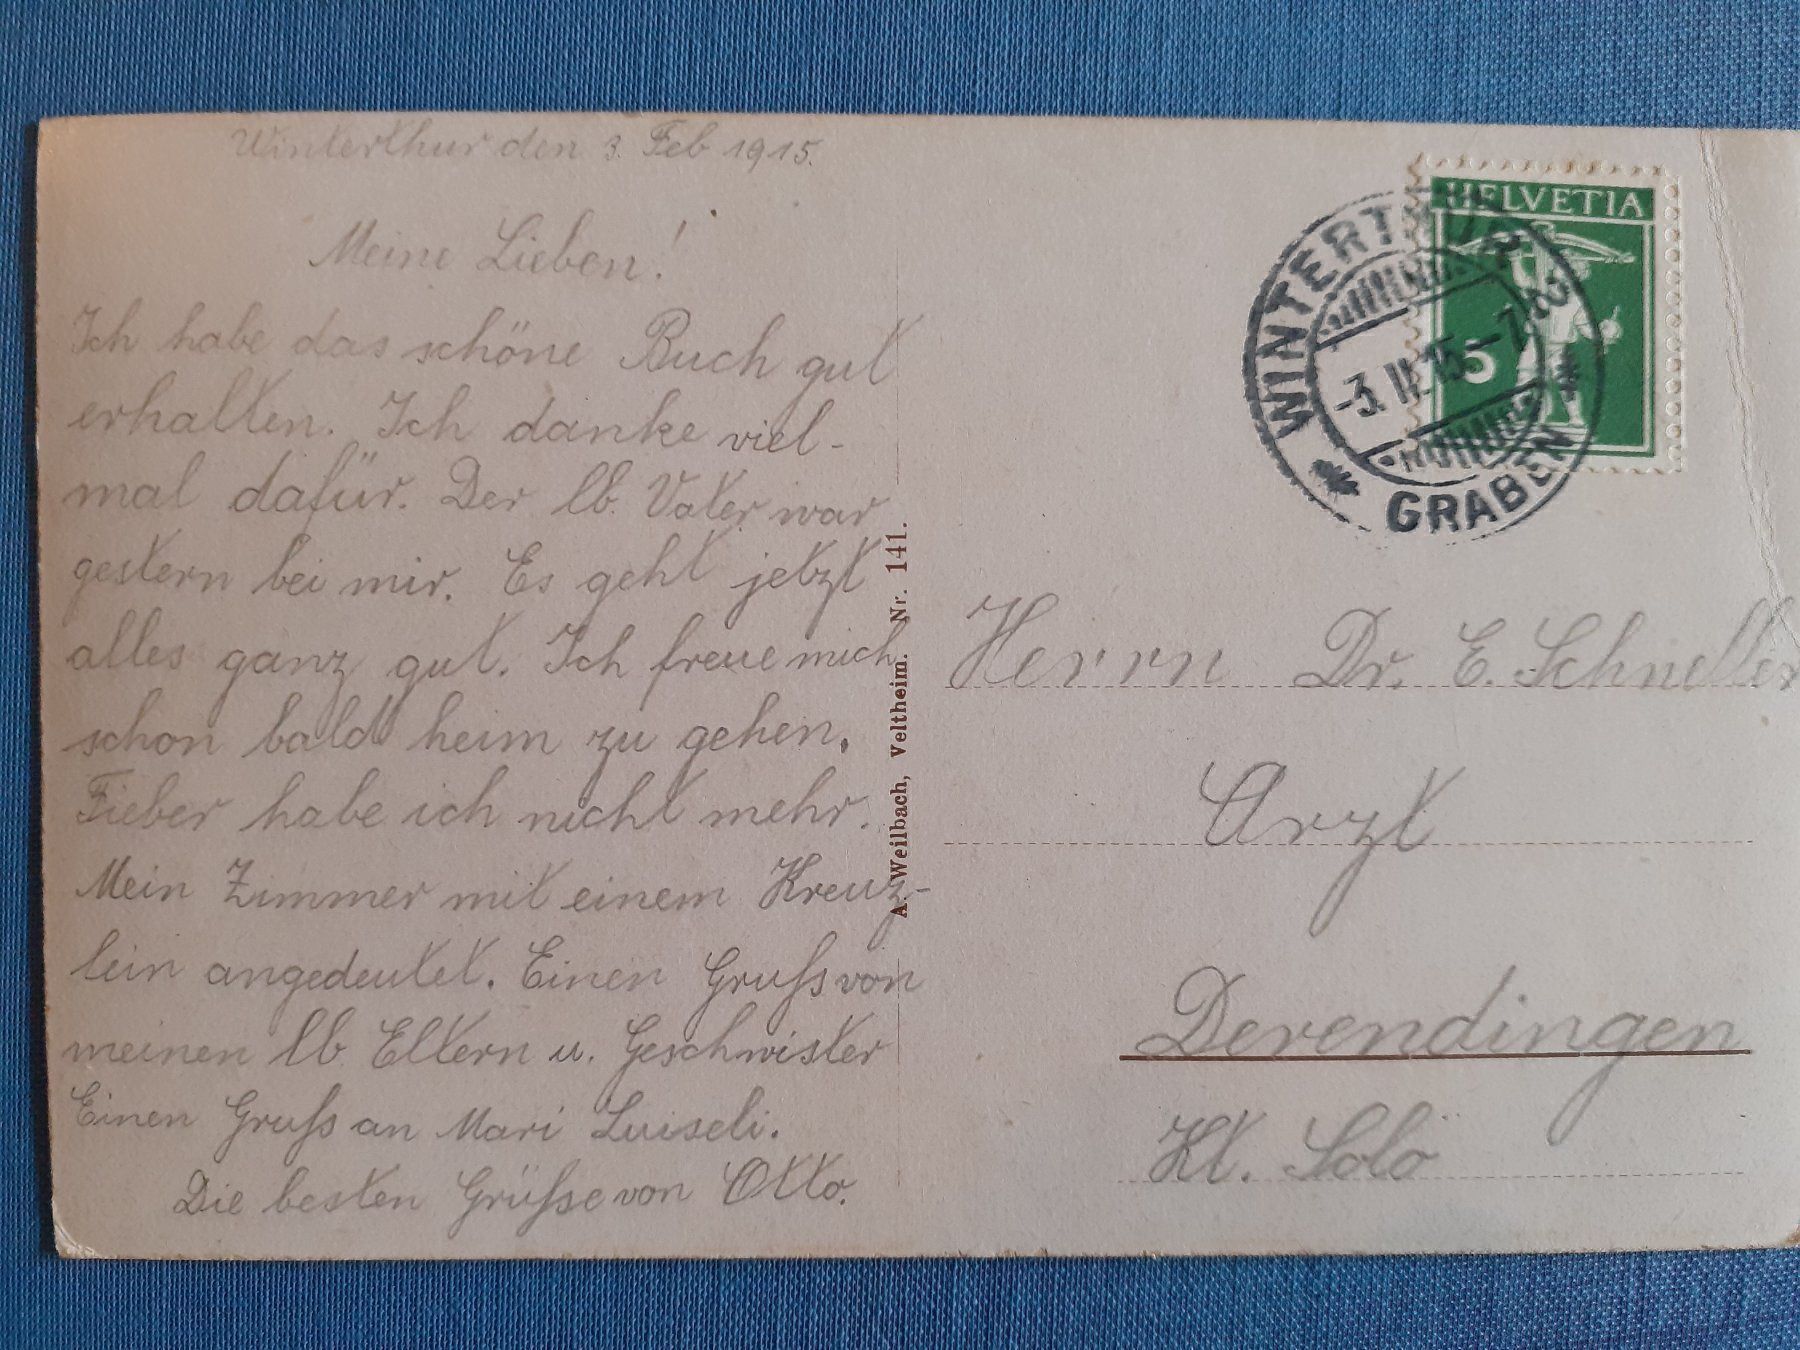 Winterthur den 3. Feb 1915.
Meine Lieben!
Ich habe das schöne Buch gut
erhalten. Ich danke viel-
mal dafür. Der lb. Vater war
gestern bei mir. Es geht jetzt
alles ganz gut. Ich freue mich
schon bald heim zu gehen.
Fieber habe ich nicht mehr.
Mein Zimmer mit einem Kreuz-
lein angedeutet. Einen Gruss von
meinen lb Eltern u. Geschwister
Einen Gruss an Mari Luiseli.
Die besten Grüsse von Otto.
A. Weilbach, Veltheim. Nr. 141.
HELVETIA
5
WINTERTHUR
-3. II. 15 - 7
GRABEN
Herrn Dr. E. Schneller
Arzt
Derendingen
Kt. Solo